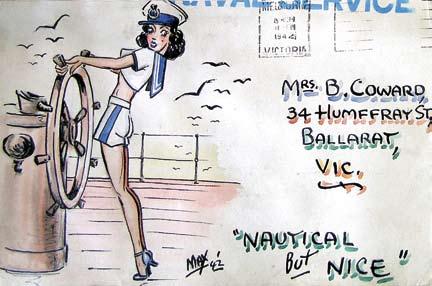 NAVAL SERVICE
MELBOURNE
1942
VICTORIA
MRS. B. COWARD,
34 HUMFFRAY ST,
BALLARAT,
VIC.
"NAUTICAL
BUT NICE"
MAX '42